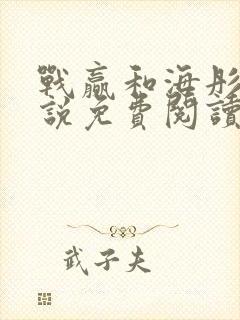 戰贏和海彤
說免費閱讀
武子夫